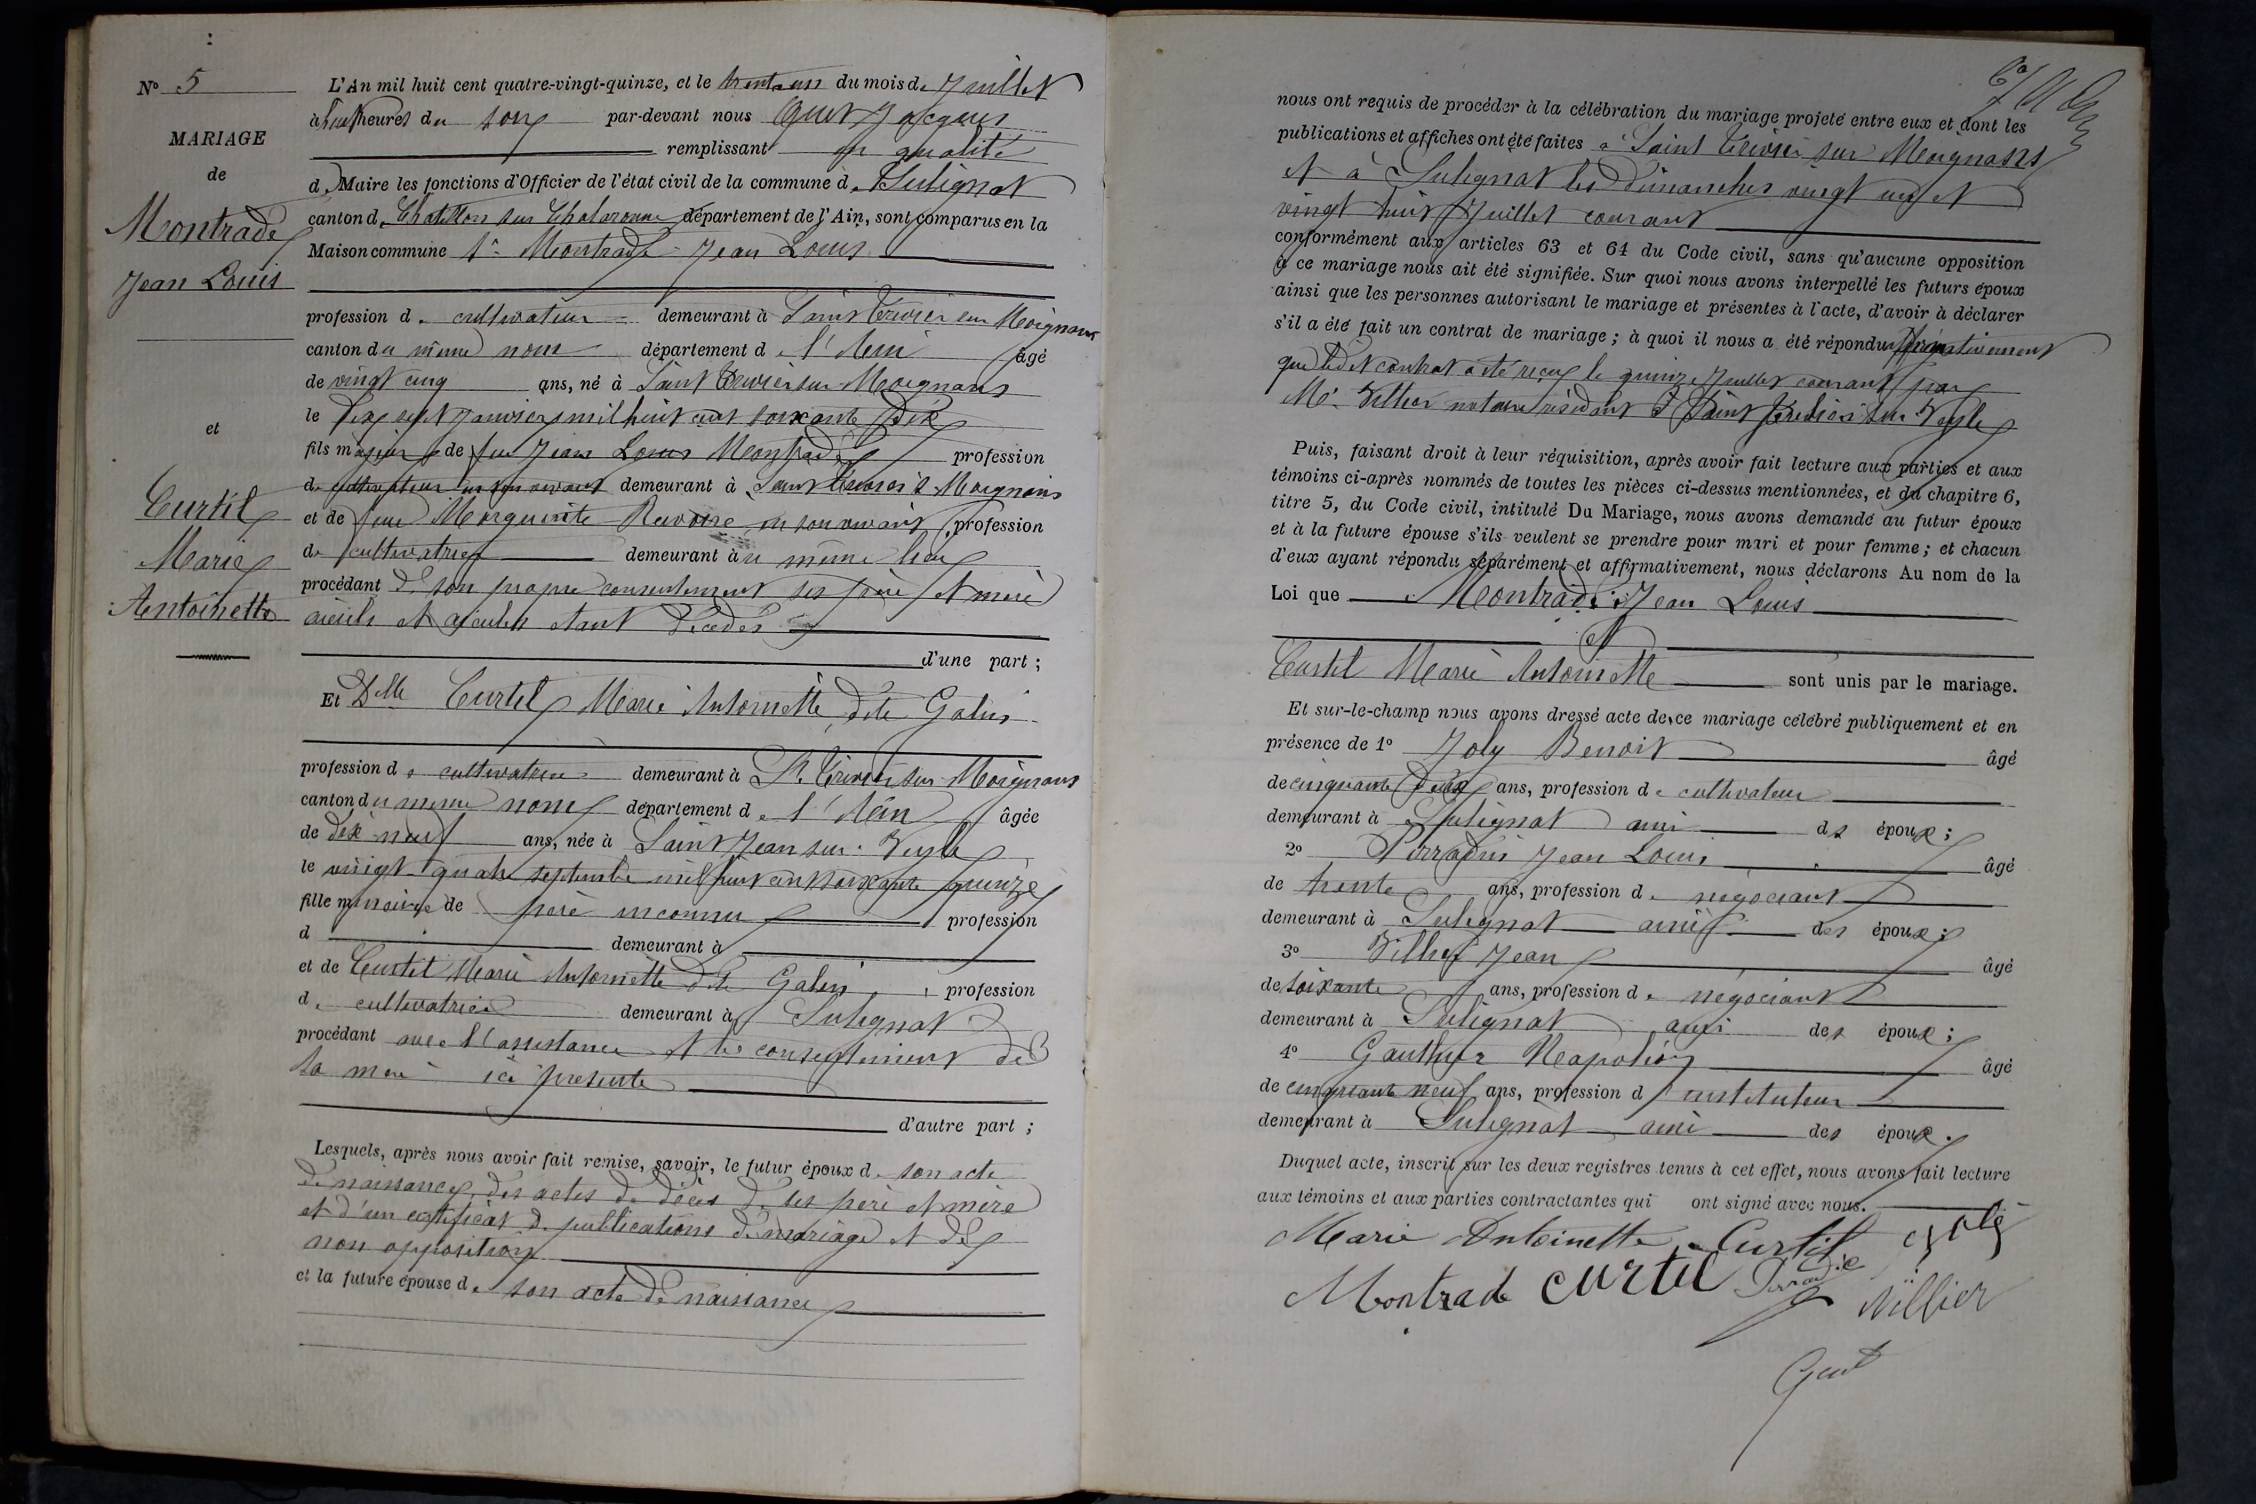 N° 5
MARIAGE
de
Montrade
Jean Louis
et
Curtil
Marie
Antoinette
L'An mil huit cent quatre-vingt-quinze, et le trente un du mois de Juillet
à huit heures du soir par-devant nous Guet Jacques
remplissant en qualité
de Maire les fonctions d'Officier de l'état civil de la commune de Sulignat
canton de Chatillon sur Chalaronne département de l'Ain, sont comparus en la
Maison commune 1° Montrade Jean Louis
profession de cultivateur demeurant à Saint Trivier sur Moignans
canton du même nom département de l'Ain âgé
de vingt cinq ans, né à Saint Trivier sur Moignans
le dix sept Janvier mil huit cent soixante dix
fils majeur de feu Jean Louis Montrade profession
de cultivateur en son vivant demeurant à Saint Trivier s Moignans
et de feue Marguerite Revoire en son vivant profession
de cultivatrice demeurant au même lieu
procédant de son propre consentement ses père et mère
aieuls et aieules étant décédés
d'une part ;
Et Delle Curtil Marie Antoinette dite Galin
profession de cultivateur demeurant à St Trivier sur Moignans
canton du même nom département de l'Ain âgée
de dix neuf ans, née à Saint Jean sur Veyle
le vingt quatre septembre mil huit cent soixante quinze
fille mineure de père inconnu profession
d demeurant à
et de Curtil Marie Antoinette dite Galin profession
de cultivatrice demeurant à Sulignat
procédant avec l'assistance et le consentement de
sa mère ici présente
d'autre part ;
Lesquels, après nous avoir fait remise, savoir, le futur époux de son acte
de naissance, des actes de décès de ses père et mère
et d'un certificat de publications de mariage et de
non opposition
et la future épouse de son acte de naissance
nous ont requis de procéder à la célébration du mariage projeté entre eux et dont les
publications et affiches ont été faites à Saint Trivier sur Moignans
et à Sulignat les dimanches vingt un et
vingt huit Juillet courant
conformément aux articles 63 et 64 du Code civil, sans qu'aucune opposition
à ce mariage nous ait été signifiée. Sur quoi nous avons interpellé les futurs époux
ainsi que les personnes autorisant le mariage et présentes à l'acte, d'avoir à déclarer
s'il a été fait un contrat de mariage ; à quoi il nous a été répondu
que ledit contrat a été reçu le quinze Juillet courant par
Me Villier notaire résidant à Saint sur Veyle
Puis, faisant droit à leur réquisition, après avoir fait lecture aux parties et aux
témoins ci-après nommés de toutes les pièces ci-dessus mentionnées, et du chapitre 6,
titre 5, du Code civil, intitulé Du Mariage, nous avons demandé au futur époux
et à la future épouse s'ils veulent se prendre pour mari et pour femme ; et chacun
d'eux ayant répondu séparément et affirmativement, nous déclarons Au nom de la
Loi que Montrade Jean Louis
et
Curtil Marie Antoinette sont unis par le mariage.
Et sur-le-champ nous avons dressé acte de ce mariage célébré publiquement et en
présence de 1° Joly Benoit âgé
de cinquante deux ans, profession de cultivateur
demeurant à Sulignat ami des époux ;
2° Perradin Jean Louis âgé
de trente ans, profession de négociant
demeurant à Sulignat ami des époux ;
3° Villier Jean âgé
de soixante ans, profession de négociant
demeurant à Sulignat ami des époux ;
4° Gauthier Napoléon âgé
de cinquante neuf ans, profession d'instituteur
demeurant à Sulignat ami des époux.
Duquel acte, inscrit sur les deux registres tenus à cet effet, nous avons fait lecture
aux témoins et aux parties contractantes qui ont signé avec nous.
Marie Antoinette Curtil Joly
Montrade Curtil Villier
Guet